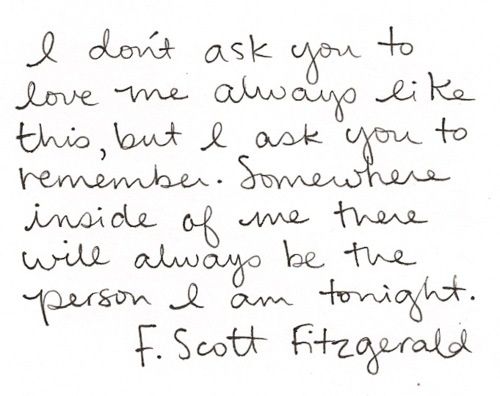 I don't ask you to
love me always like
this, but I ask you to
remember. Somewhere
inside of me there
will always be the
person I am tonight.
F. Scott Fitzgerald